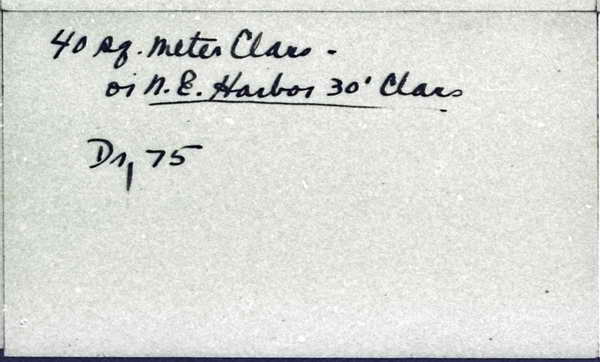 40 sq. meter Class -
or N. E. Harbor 30' Class
Dr, 75